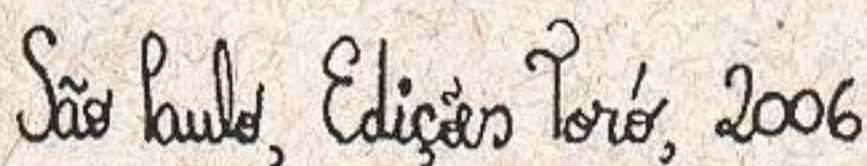 São Paulo, Edições Toró, 2006